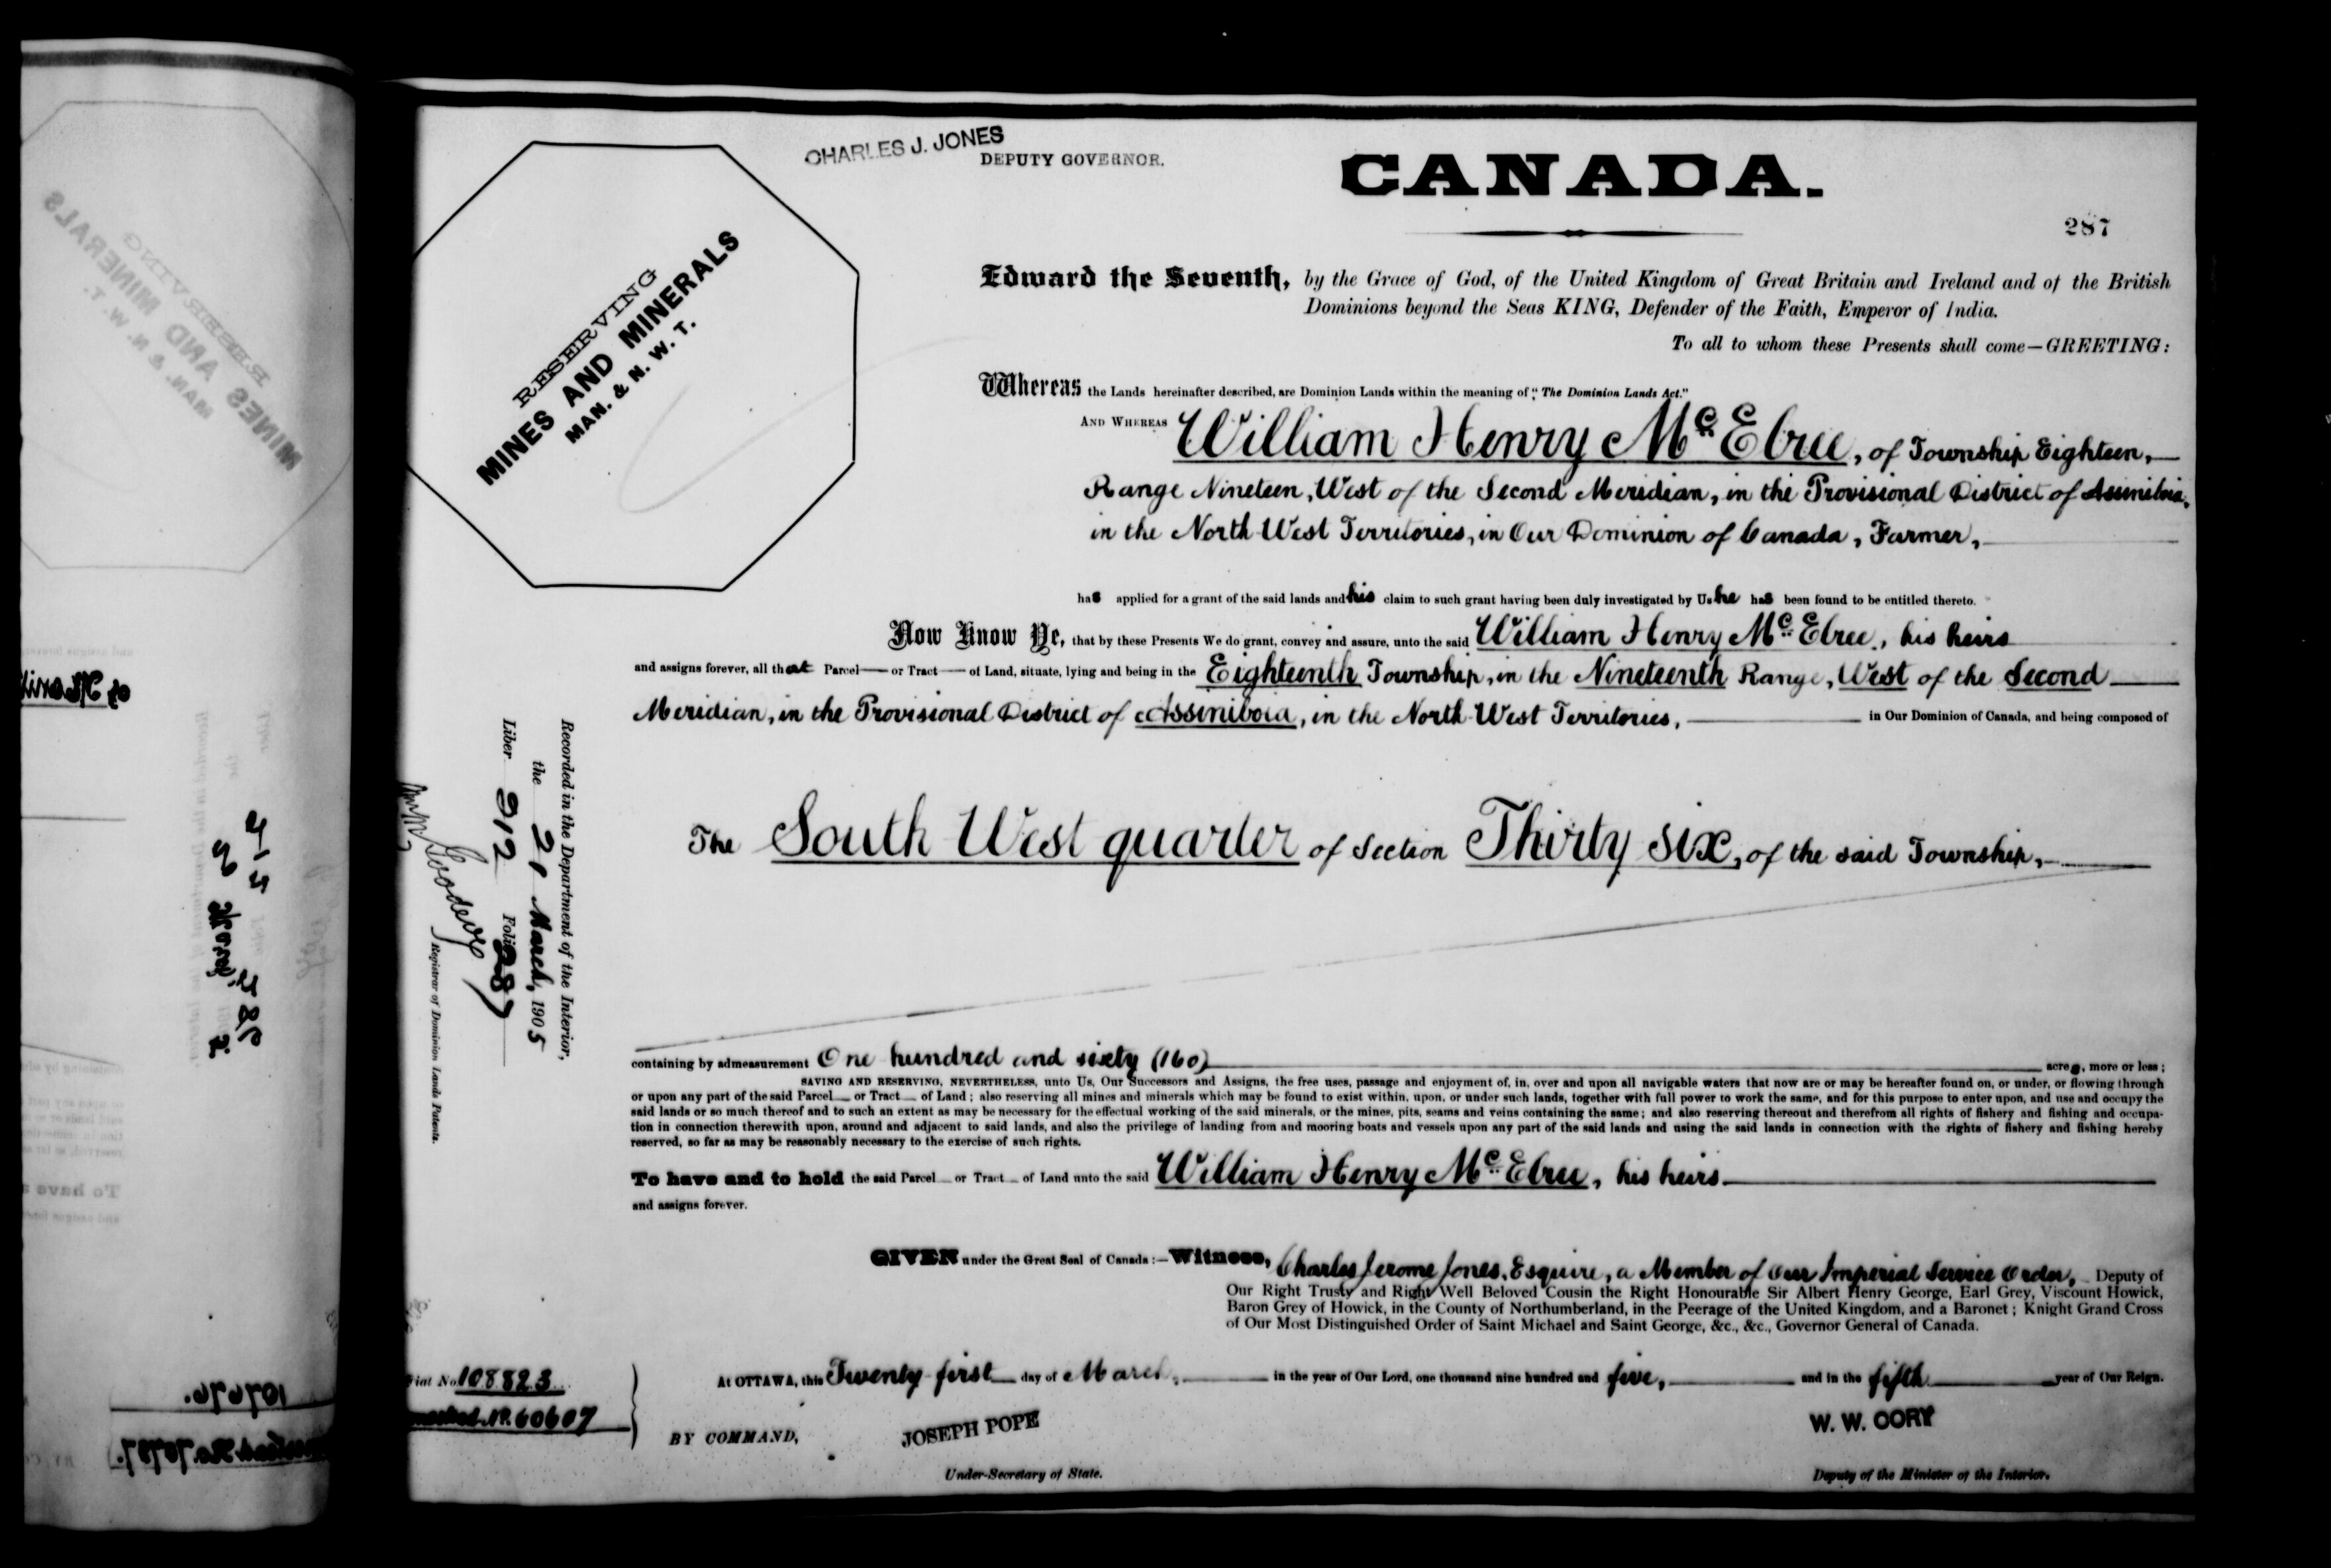 CHARLES J. JONES
DEPUTY GOVERNOR.
CANADA.
287
RESERVING
MINES AND MINERALS
MAN. & N. W. T.
Edward the Seventh, by the Grace of God, of the United Kingdom of Great Britain and Ireland and of the British
Dominions beyond the Seas KING, Defender of the Faith, Emperor of India.
To all to whom these Presents shall come—GREETING:
Whereas the Lands hereinafter described, are Dominion Lands within the meaning of "The Dominion Lands Act."
AND WHEREAS William Henry McElree, of Township Eighteen,
Range Nineteen, West of the Second Meridian, in the Provisional District of Assiniboia,
in the North West Territories, in Our Dominion of Canada, Farmer,
has applied for a grant of the said lands and his claim to such grant having been duly investigated by Us he has been found to be entitled thereto.
Now Know Ye, that by these Presents We do grant, convey and assure, unto the said William Henry McElree, his heirs
and assigns forever, all that Parcel or Tract of Land, situate, lying and being in the Eighteenth Township, in the Nineteenth Range, West of the Second
Meridian, in the Provisional District of Assiniboia, in the North West Territories, in Our Dominion of Canada, and being composed of
The South West quarter of Section Thirty six, of the said Township,
containing by admeasurement One hundred and sixty (160) acres, more or less;
SAVING AND RESERVING, NEVERTHELESS, unto Us, Our Successors and Assigns, the free uses, passage and enjoyment of, in, over and upon all navigable waters that now are or may be hereafter found on, or under, or flowing through
or upon any part of the said Parcel or Tract of Land; also reserving all mines and minerals which may be found to exist within, upon, or under such lands, together with full power to work the same, and for this purpose to enter upon, and use and occupy the
said lands or so much thereof and to such an extent as may be necessary for the effectual working of the said minerals, or the mines, pits, seams and veins containing the same; and also reserving thereout and therefrom all rights of fishery and fishing and occupa-
tion in connection therewith upon, around and adjacent to said lands, and also the privilege of landing from and mooring boats and vessels upon any part of the said lands and using the said lands in connection with the rights of fishery and fishing hereby
reserved, so far as may be reasonably necessary to the exercise of such rights.
To have and to hold the said Parcel or Tract of Land unto the said William Henry McElree, his heirs
and assigns forever.
GIVEN under the Great Seal of Canada:—Witness, Charles Jerome Jones, Esquire, a Member of Our Imperial Service Order, Deputy of
Our Right Trusty and Right Well Beloved Cousin the Right Honourable Sir Albert Henry George, Earl Grey, Viscount Howick,
Baron Grey of Howick, in the County of Northumberland, in the Peerage of the United Kingdom, and a Baronet; Knight Grand Cross
of Our Most Distinguished Order of Saint Michael and Saint George, &c., &c., Governor General of Canada.
At OTTAWA, this Twenty first day of March, in the year of Our Lord, one thousand nine hundred and five, and in the fifth year of Our Reign.
BY COMMAND,
JOSEPH POPE
Under-Secretary of State.
W. W. CORY
Deputy of the Minister of the Interior.
Recorded in the Department of the Interior,
the 21 March, 1905
Liber 212 Folio 287
Registrar of Dominion Lands Patents.
Fiat No. 108823
No. 60607